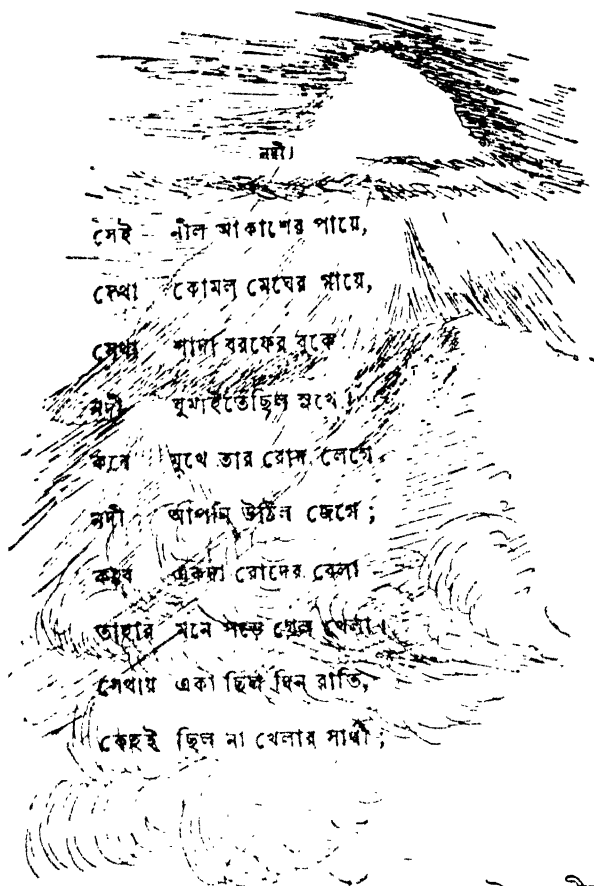 নদী।
সেই নীল আকাশের পায়ে,
সেথা কোমল মেঘের গায়ে,
সেথা শাদা বরফের বুকে
নদী ঘুমাইতেছিল সুখে।
কবে মুখে তার রোদ লেগে
নদী আপনি উঠিল জেগে;
কবে একদা রোদের বেলা
তাহার মনে পড়ে গেল খেলা।
সেথায় একা ছিল দিন রাতি,
কেহই ছিল না খেলার সাথী;